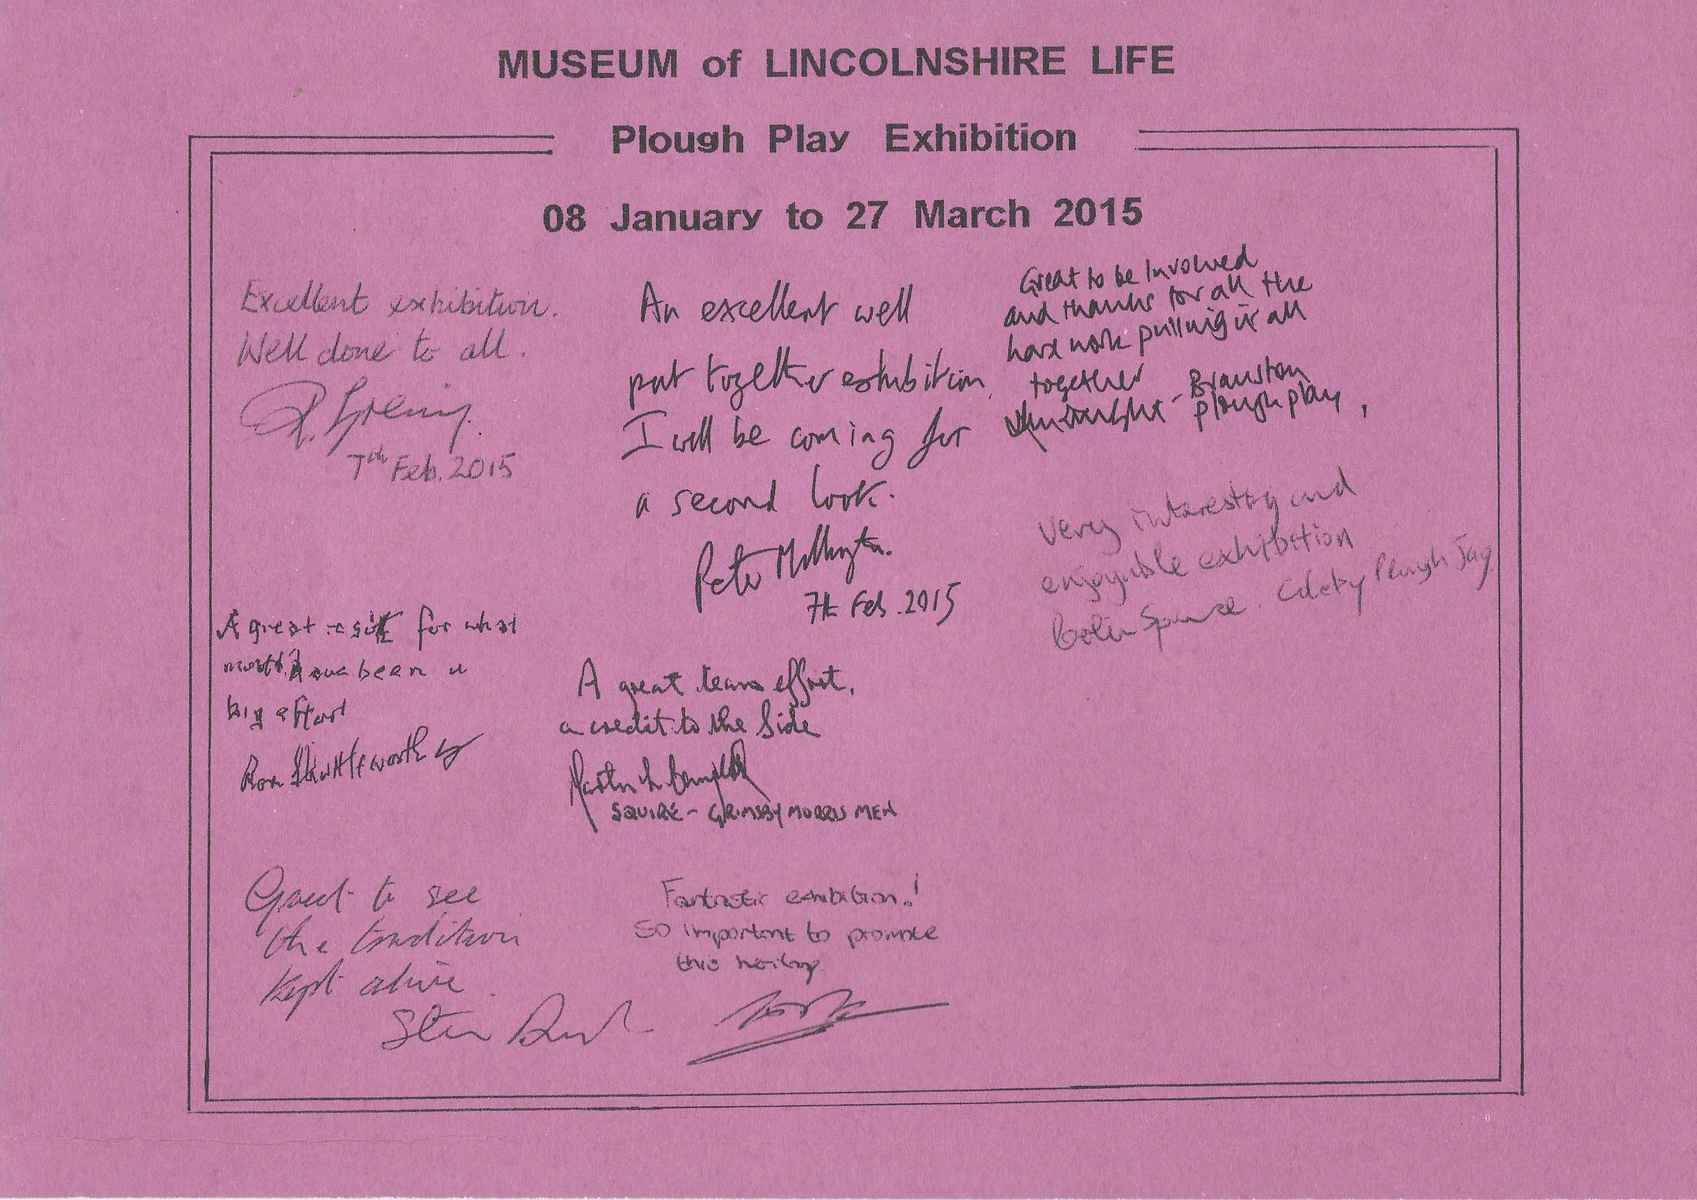 MUSEUM of LINCOLNSHIRE LIFE
Plough Play Exhibition
08 January to 27 March 2015
Excellent exhibition.
Well done to all.
7th Feb. 2015
An excellent well
put together exhibition.
I will be coming for
a second look.
Peter Millington.
7th Feb. 2015
Great to be involved
and thanks for all the
hard work pulling it all
together
- Branston
plough play,
Very interesting and
enjoyable exhibition
Plough Jag
A great result for what
must have been a
big effort
Ron Shuttleworth
A great team effort,
a credit to the Side
Martin
SQUIRE - GRIMSBY MORRIS MEN
Great to see
the tradition
kept alive.
Fantastic exhibition!
So important to promote
this heritage